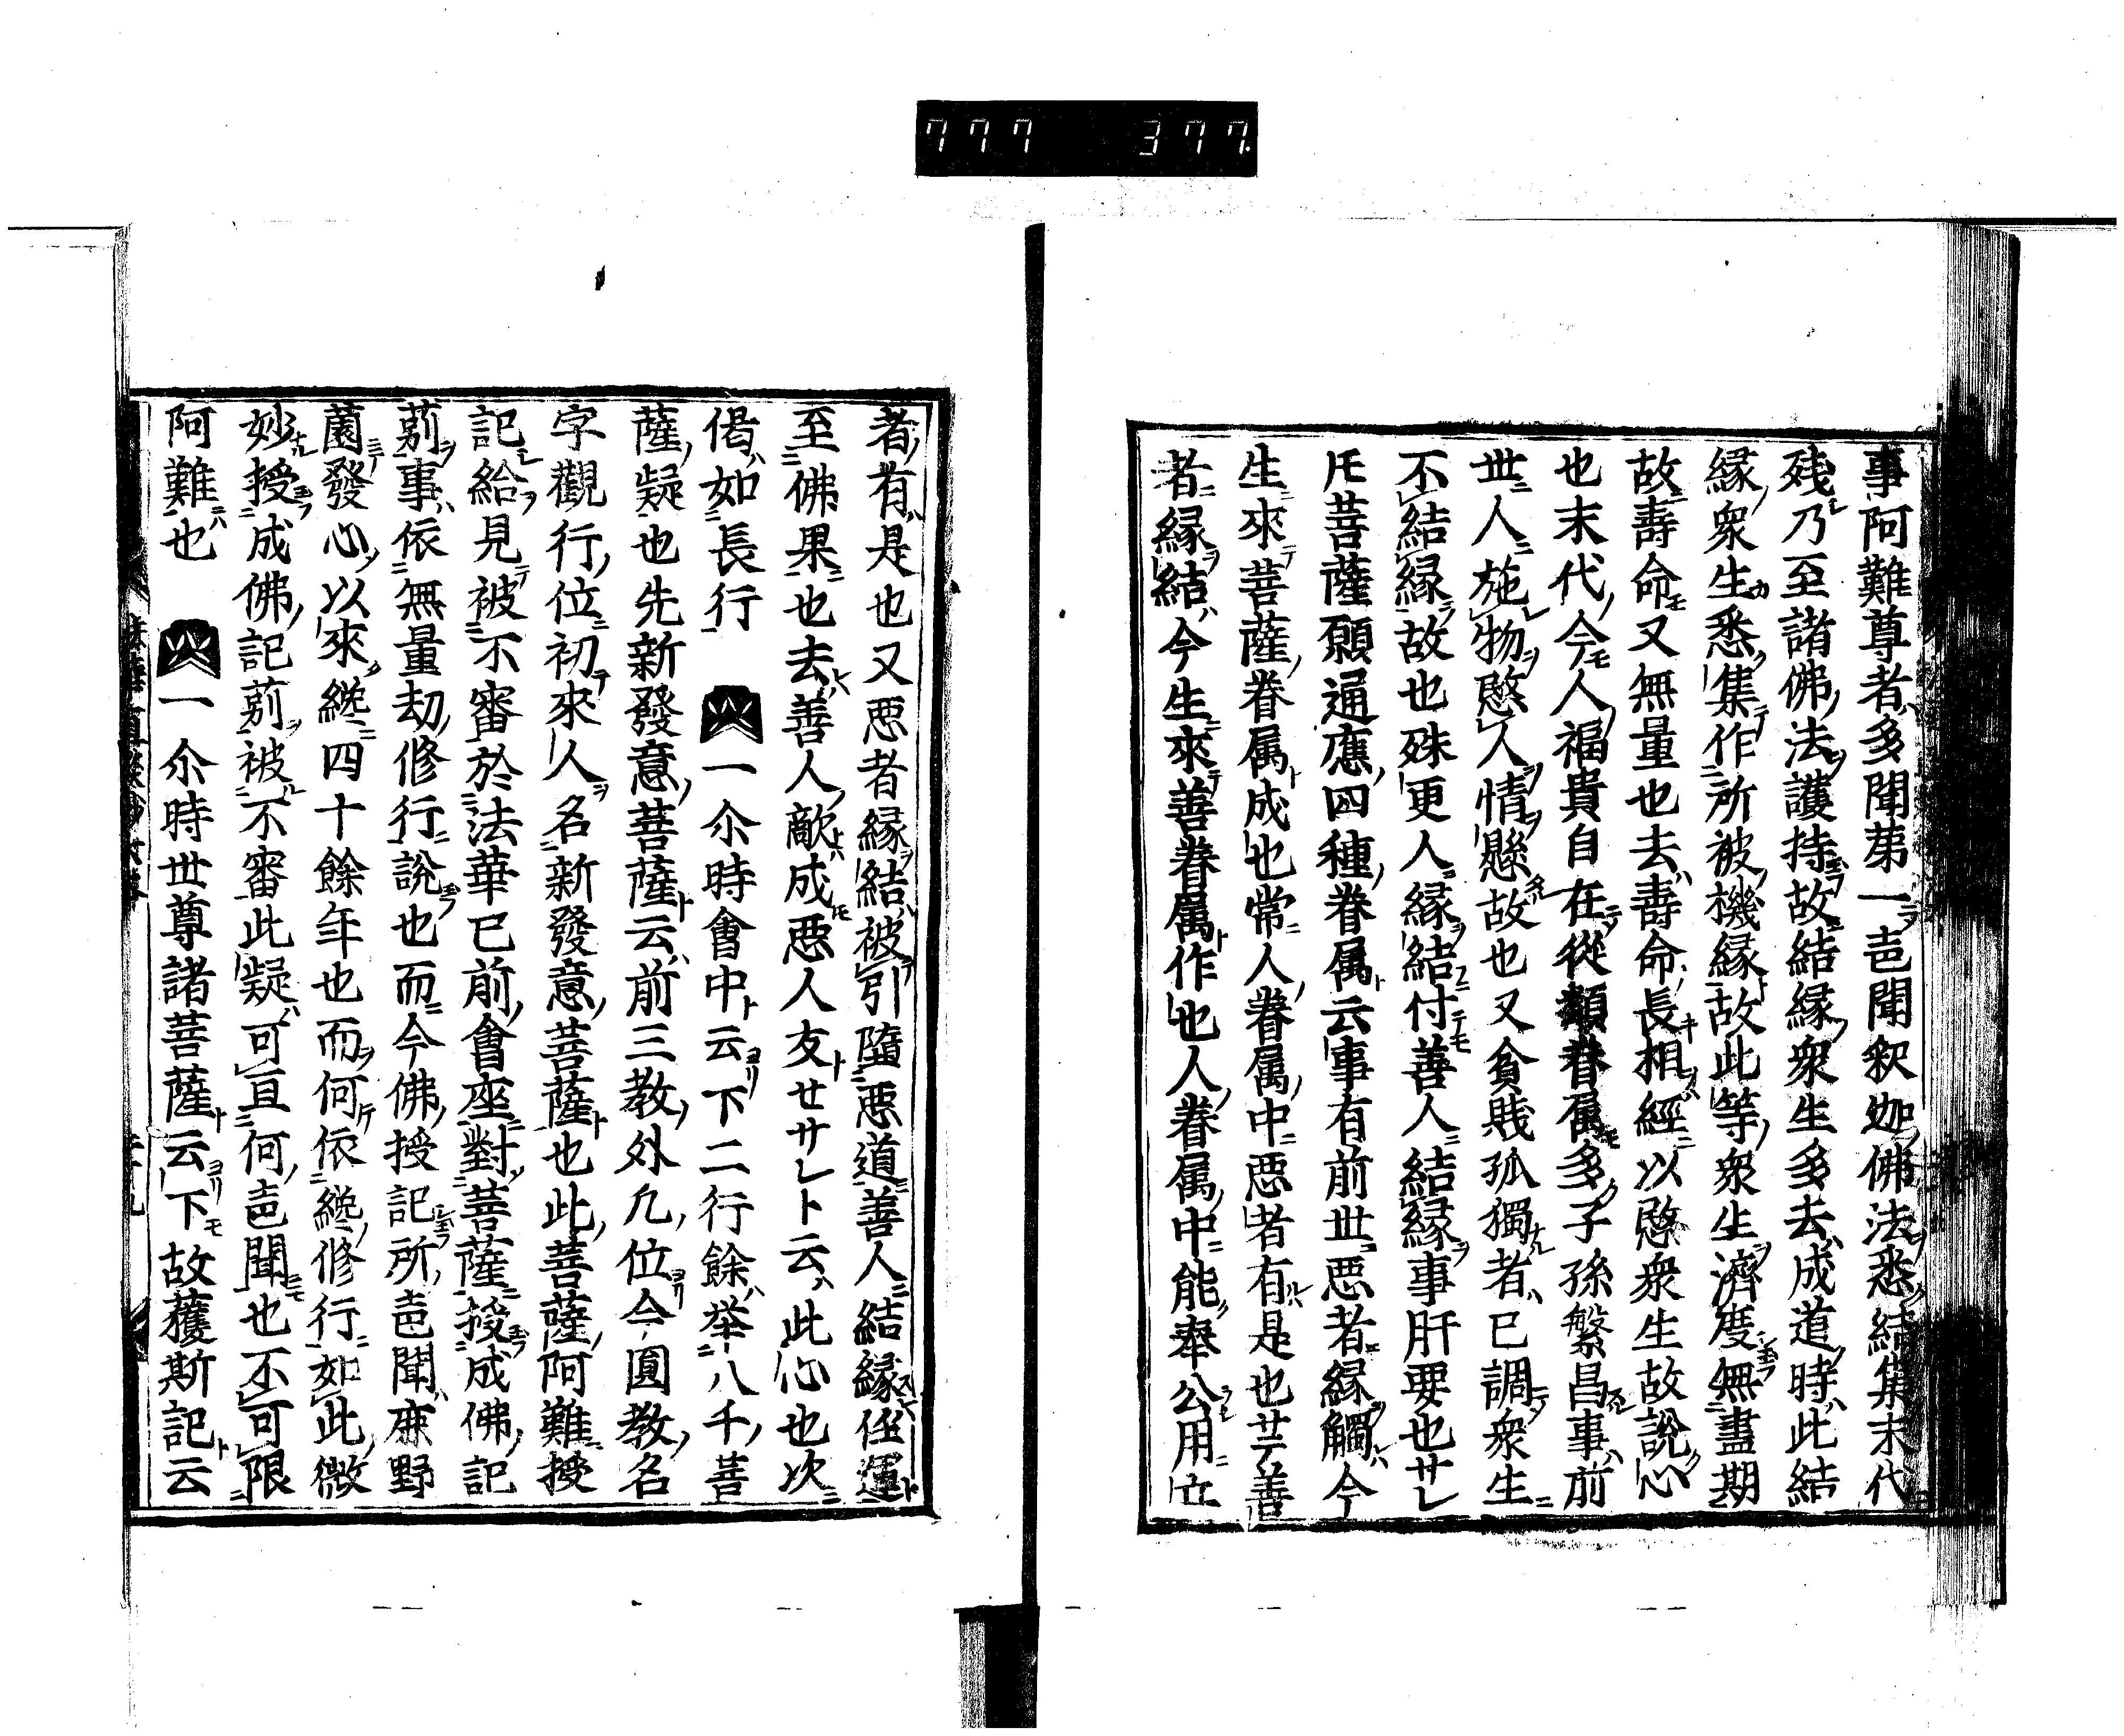 777 377.
事阿難尊者多聞第一声聞釈迦佛法悉結集末代
残乃至諸佛法護持故結縁衆生多去成道時此結
縁衆生悉集作所被機縁故此等衆生濟度無盡期
故壽命又無量也去壽命長相經以愍衆生故說心
也末代今人福貴自在從類眷属多子孫繁昌事前
世人施物愍人情懸故也又貧賎孤獨者已調衆生
不結縁故也殊更人縁結付善人結縁事肝要也サレ
𪜈菩薩願通應四種眷属云事有前世悪者縁觸今
生來菩薩眷属成也常人眷属中悪者有是也サテ善
者縁結今生來善眷属作也人眷属中能奉公用立
者有是也又悪者縁結被引墮悪道善人結縁任運
至佛果也去善人敵成悪人友せサレト云此心也次
偈如長行 一尒時會中云下二行餘举八千菩
薩疑也先新發意菩薩云前三教外凡位今圓教名
字觀行位初來人名新發意菩薩也此菩薩阿難授
記給見被不審於法華已前會座對菩薩授成佛記
莂事依無量劫修行說也而今佛授記所声聞鹿野
薗發心以來纔四十餘年也而何依纔修行如此微
妙授成佛記莂被不審此疑可亘何声聞也不可限
阿難也 一尒時世尊諸菩薩云下故獲斯記云